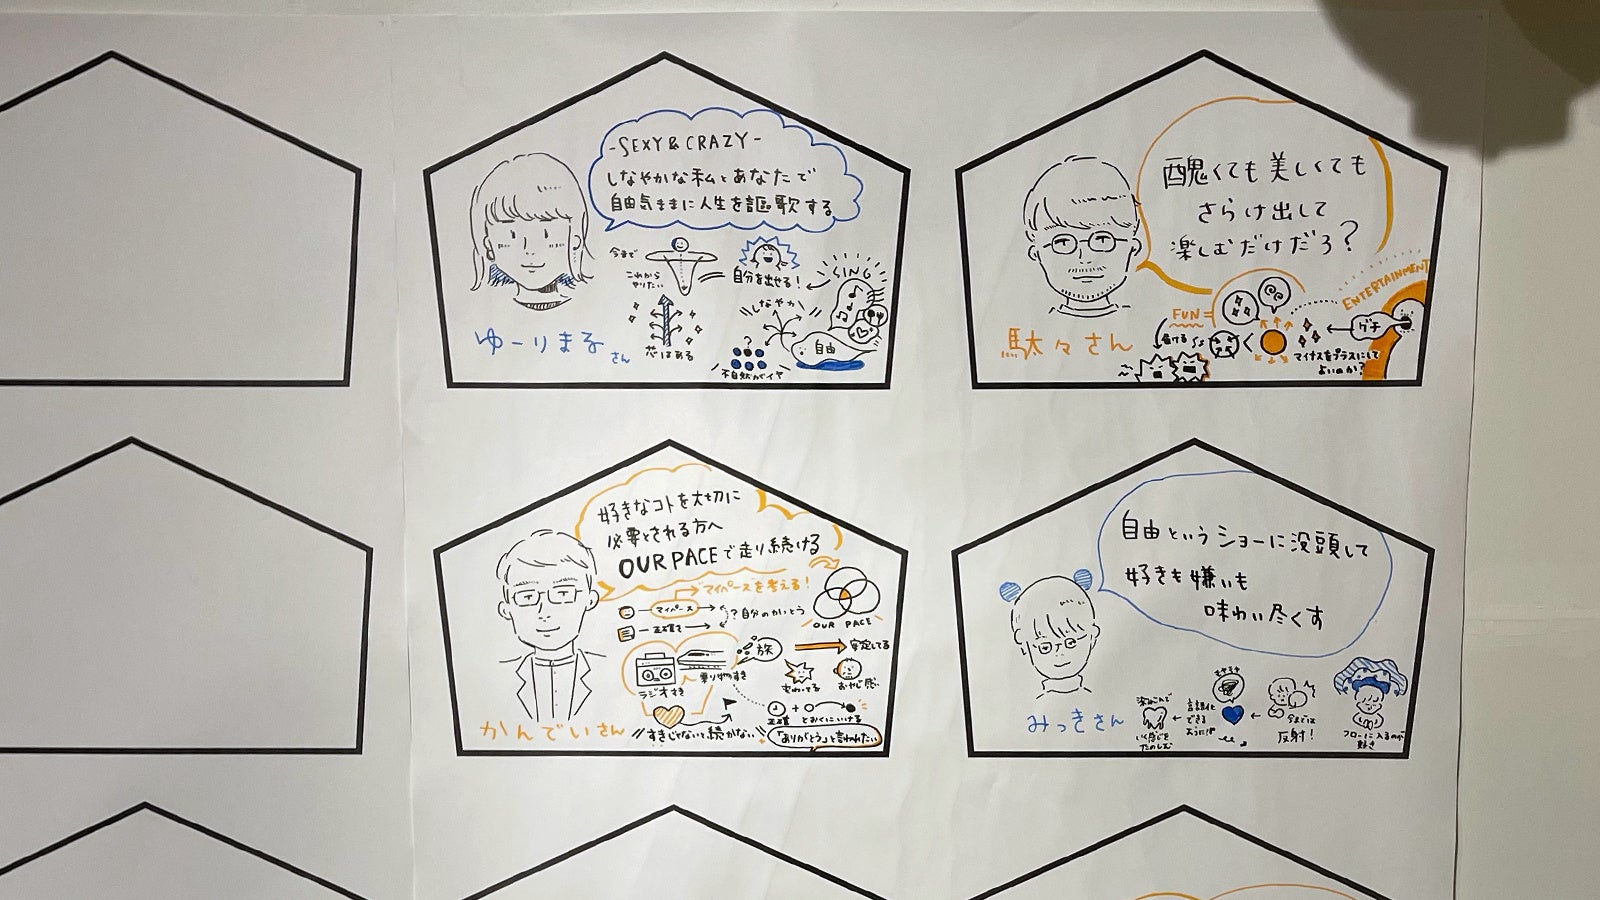 -SEXY & CRAZY-
しなやかな私とあなたで
自由気ままに人生を謳歌する
今まで
これから
やりたい
自分を出せる!
SING
しなやか
芯はある
?
自由
不自然がイヤ
ゆーりまるさん
醜くても美しくても
さらけ出して
楽しむだけだろ?
ENTERTAINMENT
FUN=
グチ
マイナスをプラスにして
よいのか?
駄々さん
好きなコトを大切に
必要とされる方へ
OUR PACEで走り続ける
マイペースを考える!
マイペース
?自分のかいとう
正確さ
OUR PACE
旅
安定してる
ラジオすき
乗り物すき
変わってる
おやじ感
正確
とおくにいける
すきじゃないと続かない
「ありがとう」と言われたい
かんでぃさん
自由というショーに没頭して
好きも嫌いも
味わい尽くす
モヤモヤ
言語化
できる
ように!!
今までは
反射!
フローに入るのが
好き
たのしむ
みっきさん